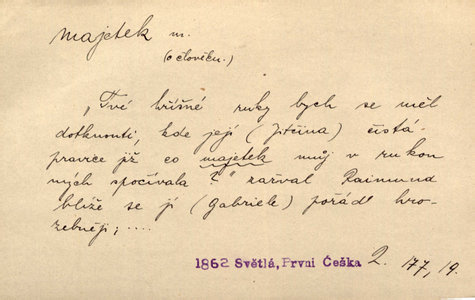 majetek m.
(o člověku.)
„Tvé hříšné ruky bych se měl
dotknouti, kde její (Jitčina) čistá,
pravce již co majetek můj v rukou
mých spočívala?" zařval Raimund
blíže se jí (Gabriele) pořád hro-
zebněji; ....
1862 Světlá, První Češka 2. 177, 19.